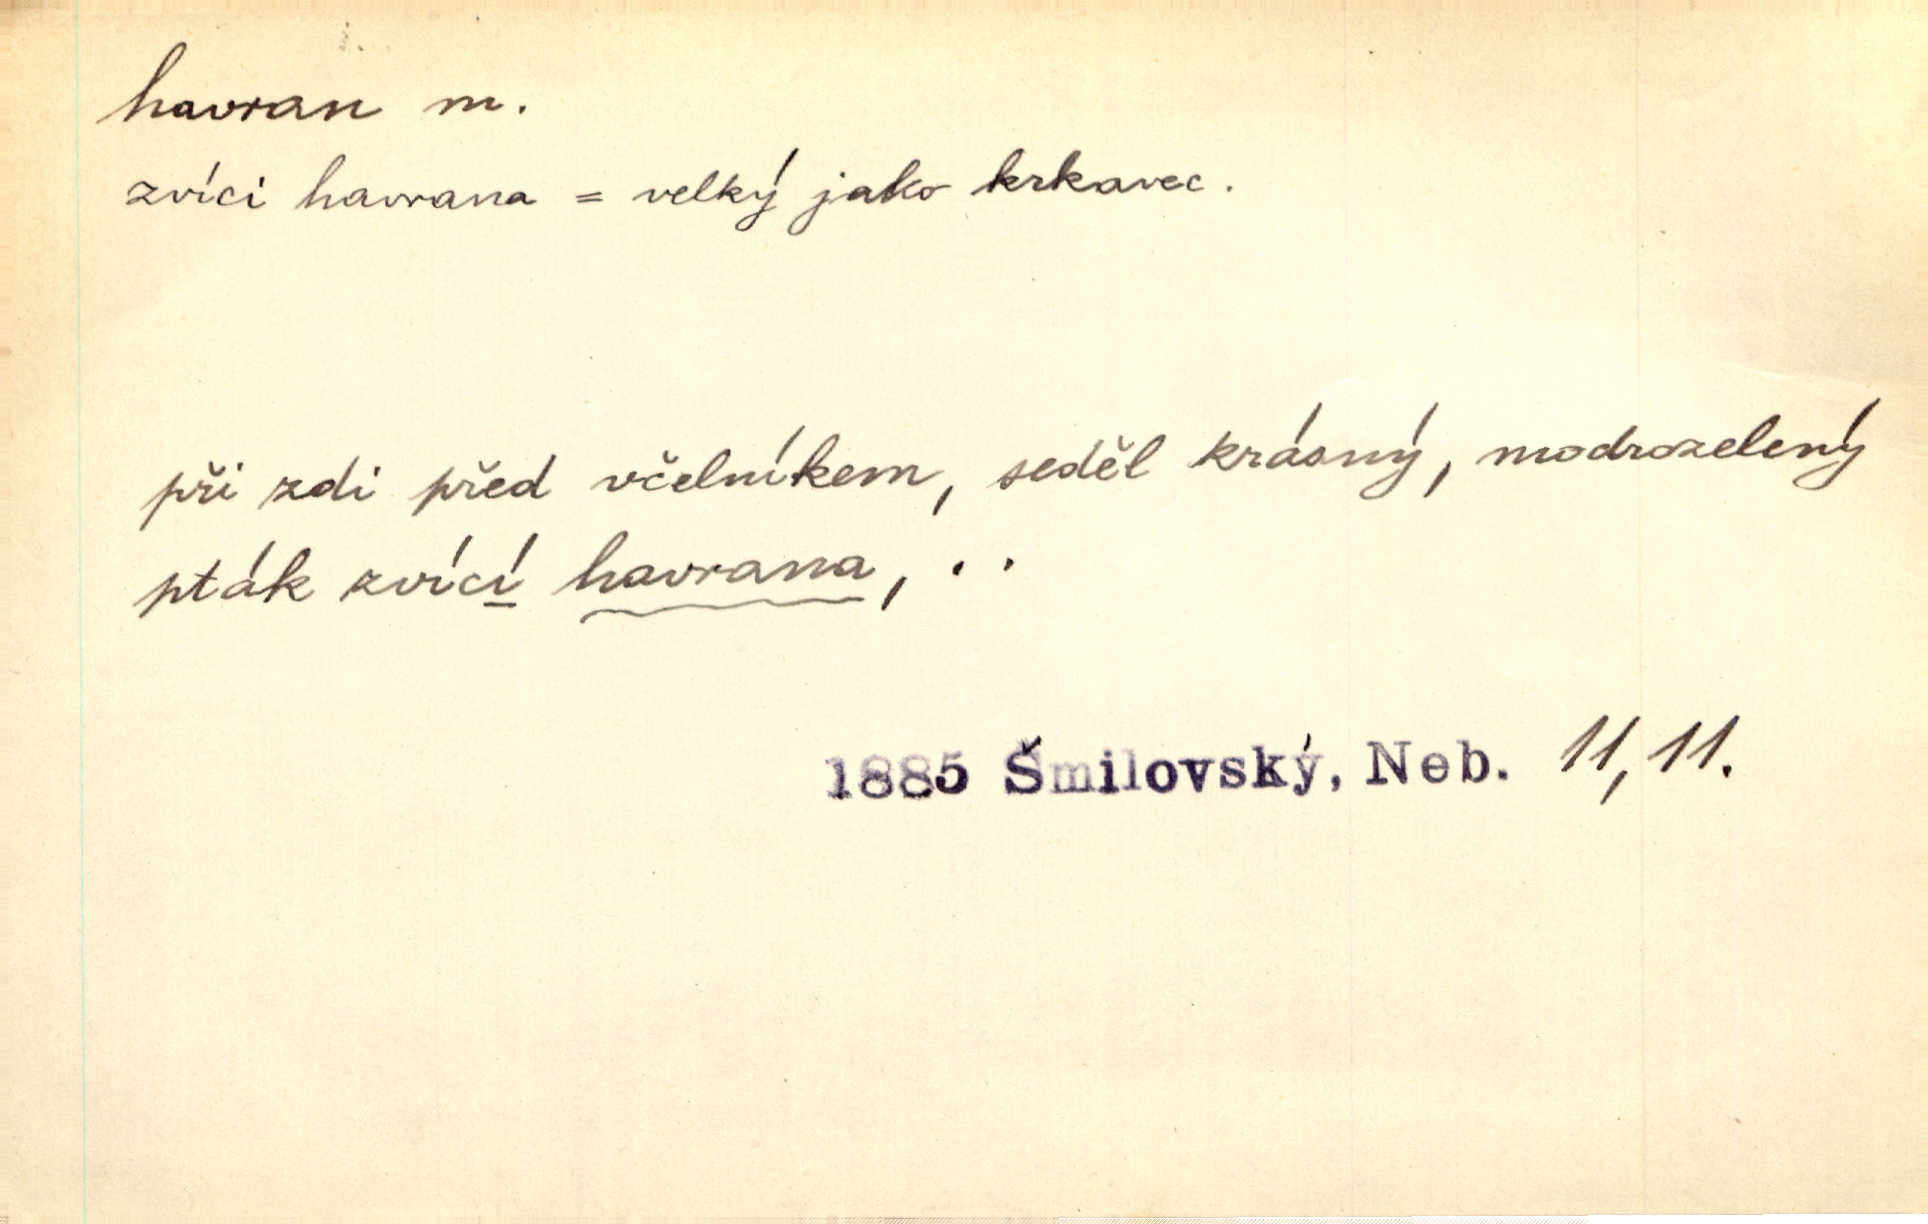 havran m.
zvíci havrana = velký jako krkavec.
při zdi před včelníkem, seděl krásný, modrozelený
pták zvící havrana, . .
1885 Šmilovský, Neb. 11, 11.